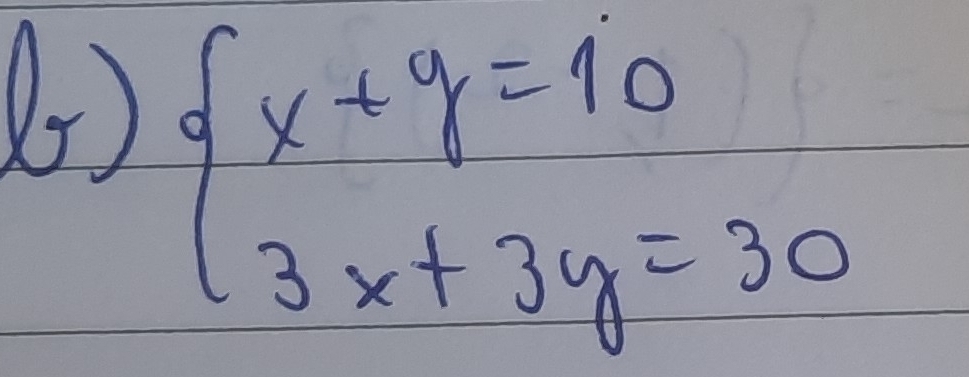 b) { x + y = 10
3x + 3y = 30